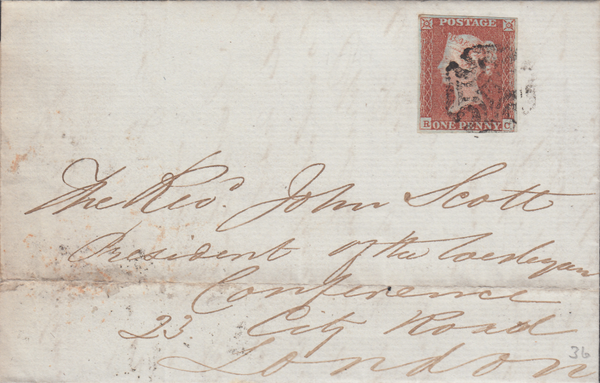 POSTAGE
ONE PENNY
The Revd. John Scott
President of the Wesleyan
Conference
23 City Road
London
36